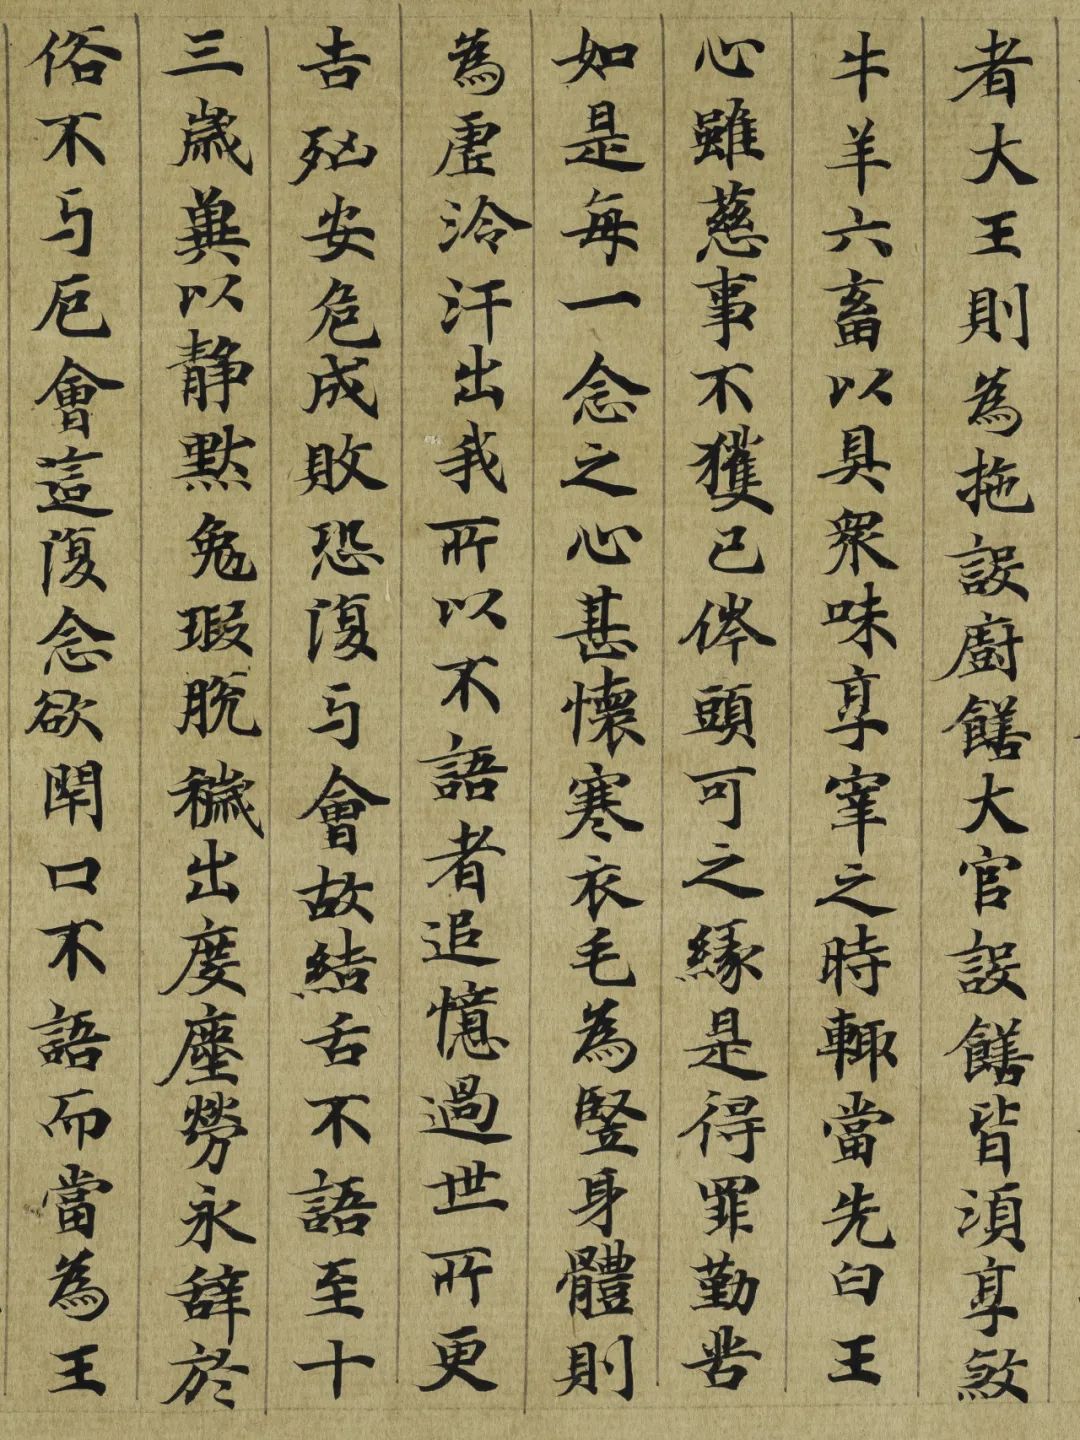 者大王則為拖設廚饍大官設饍皆湏享煞
牛羊六畜以具衆味享宰之時輙當先白王
心雖慈事不獲已俤頭可之緣是得罪勤苦
如是每一念之心甚懷寒衣毛為豎身體則
為虛泠汗出我所以不語者追憶過世所更
吉死安危成敗恐復与會故結舌不語至十
三歲冀以静默免瑕脱穢出度塵勞永辭於
俗不与厄會這復念欲閇口不語而當為王